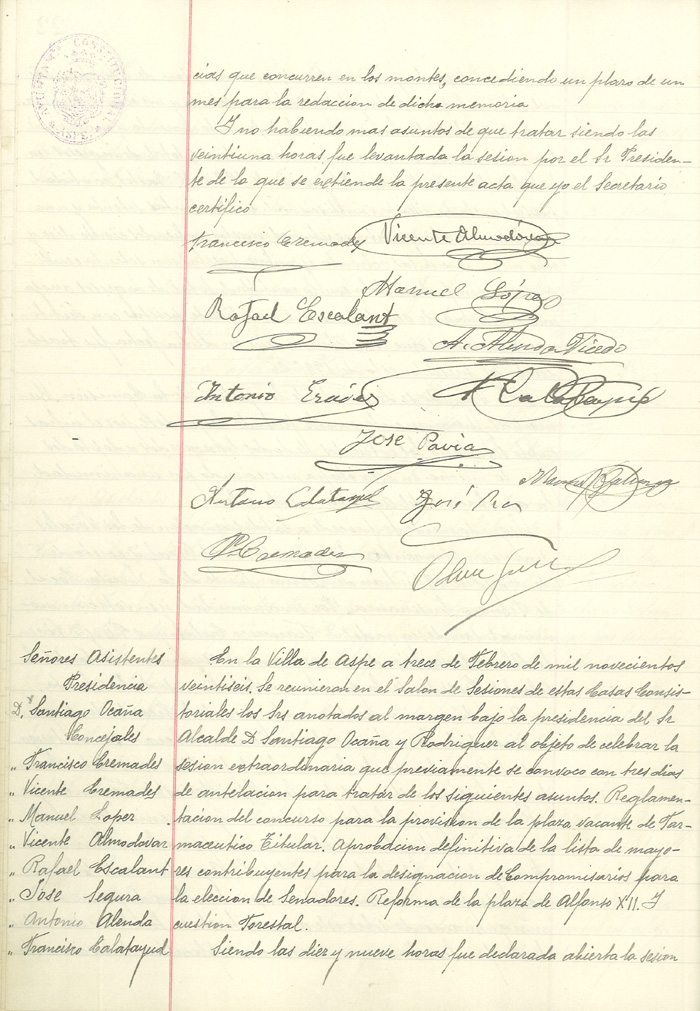 AYUNTAMIENTO CONSTITUCIONAL
ASPE
cias que concurren en los montes, concediendo un plazo de un
mes para la redaccion de dicha memoria
Y no habiendo mas asuntos de que tratar siendo las
veintiuna horas fue levantada la sesion por el Sr Presiden-
te de la que se extiende la presente acta que yo el Secretario
certifico
Francisco Cremades Vicente Almodóvar
Manuel López
Rafael Escalant
A. Alenda Vicedo
Antonio Calatayud
José Pavia
Manuel
Antonio Calatayud José
Cremades
Señores Asistentes
Presidencia
D. Santiago Ocaña
Concejales
" Francisco Cremades
" Vicente Cremades
" Manuel Lopez
" Vicente Almodovar
" Rafael Escalant
" Jose Segura
" Antonio Alenda
" Francisco Calatayud
En la Villa de Aspe a trece de Febrero de mil novecientos
veintiseis. Se reunieron en el Salon de Sesiones de estas Casas Consis-
toriales los Srs anotados al margen bajo la presidencia del Sr
Alcalde D Santiago Ocaña y Rodriguez al objeto de celebrar la
sesion extraordinaria que previamente se convoco con tres dias
de antelacion para tratar de los siguientes asuntos. Reglamen-
tacion del concurso para la provision de la plaza vacante de Far-
maceutico Titular. Aprobacion definitiva de la lista de mayo-
res contribuyentes para la designacion de Compromisarios para
la eleccion de Senadores. Reforma de la plaza de Alfonso XII. Y
cuestion Forestal.
Siendo las diez y nueve horas fue declarada abierta la sesion